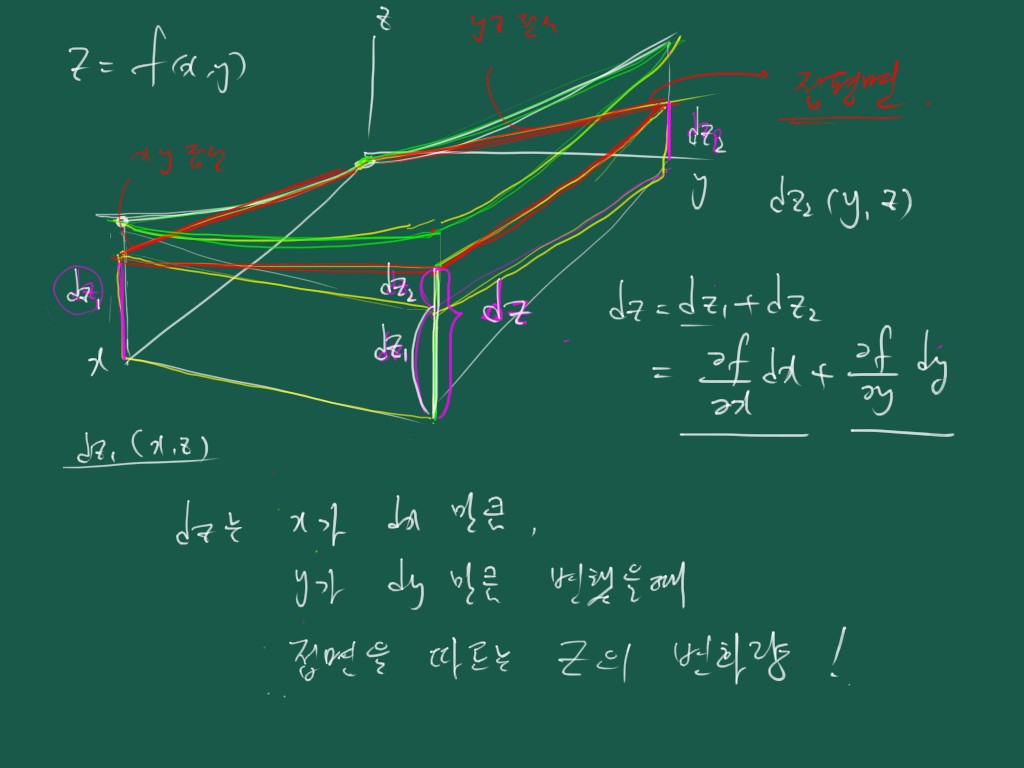 z = f(x,y)
z
yz 평면
접평면
xy 평면
dz₂
y
dz₂ (y, z)
dz₁
dz₂
dz
dz₁
x
dz = dz₁ + dz₂
= ∂f/∂x dx + ∂f/∂y dy
dz₁ (x,z)
dz는 x가 dx 만큼,
y가 dy 만큼 변했을때
접면을 따르는 Z의 변화량 !